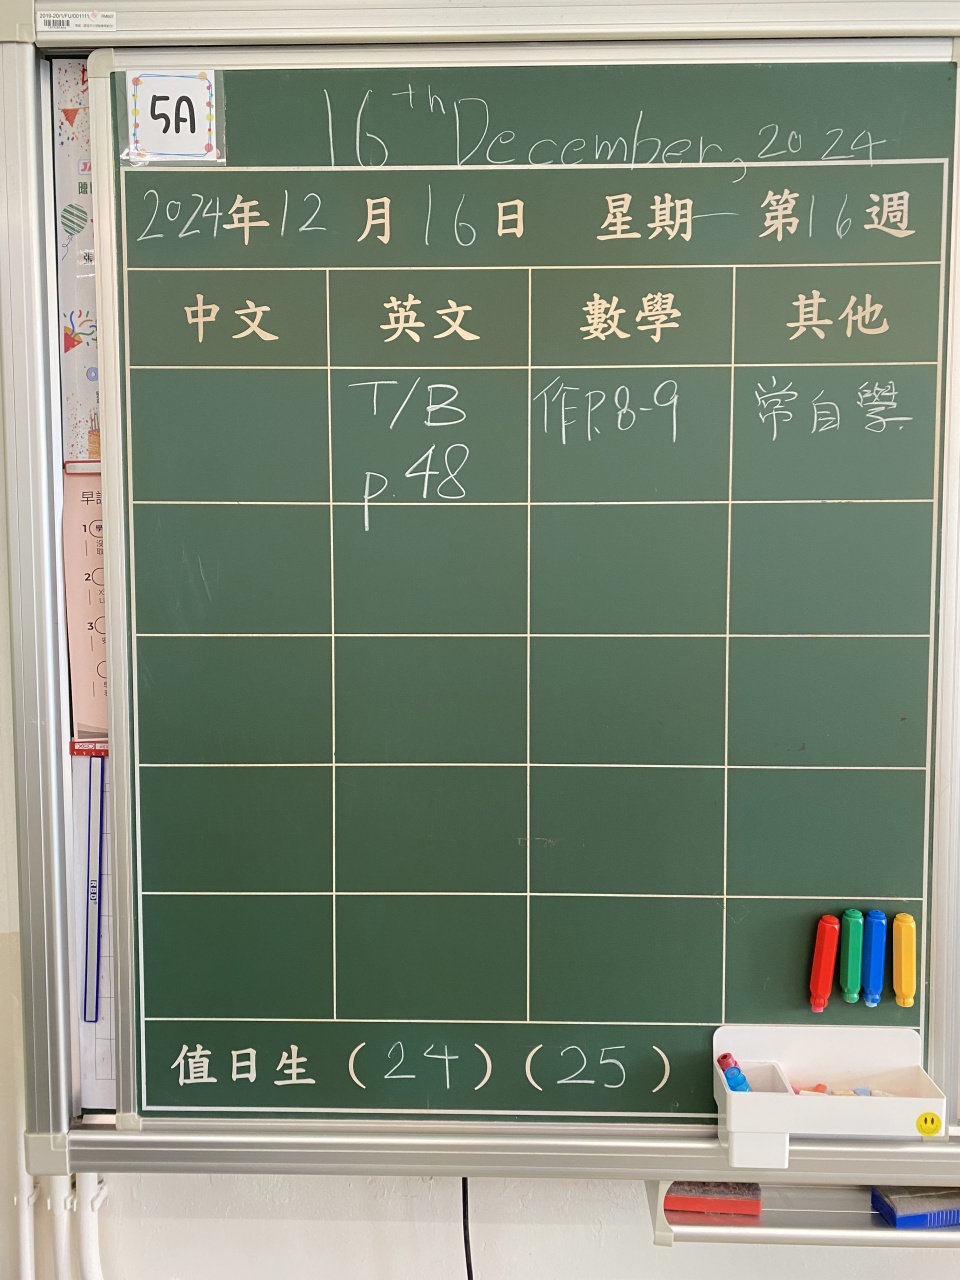 2019-20/1/FU/001111
5A
16th December, 2024
2024年12月16日 星期一 第16週
中文 英文 數學 其他
T/B 作P.8-9 常自學
p.48
值日生(24)(25)
早
1
2
3